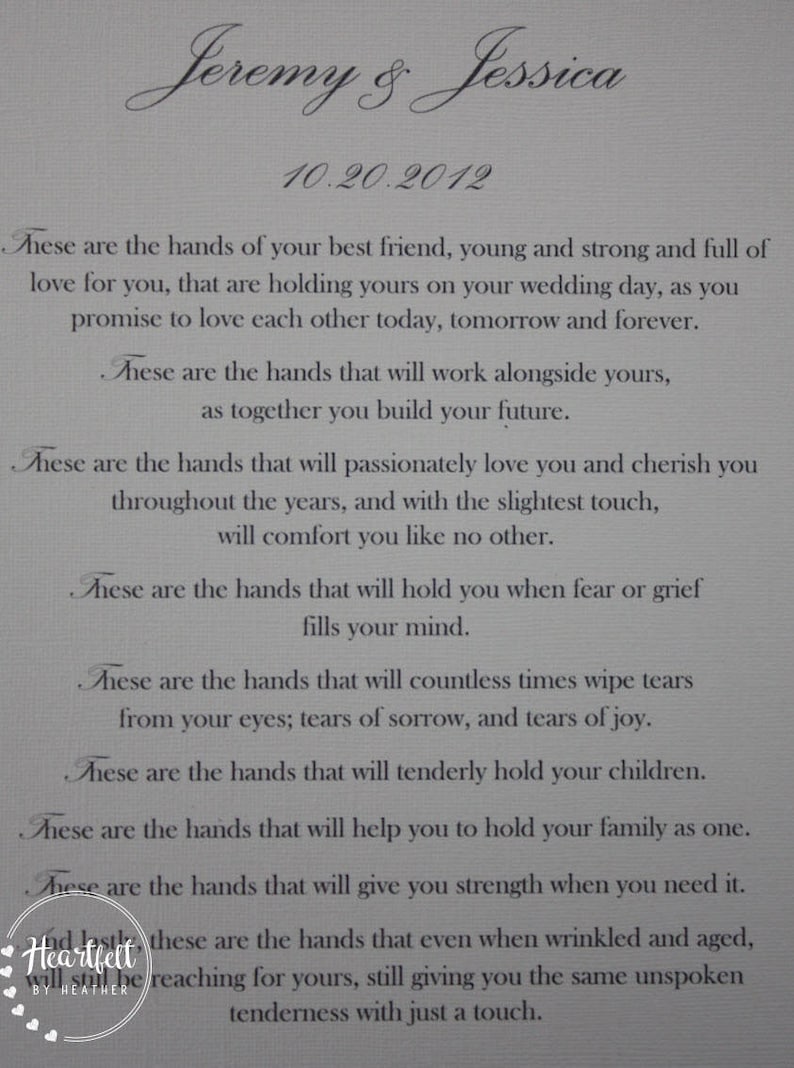 Jeremy & Jessica
10.20.2012
These are the hands of your best friend, young and strong and full of
love for you, that are holding yours on your wedding day, as you
promise to love each other today, tomorrow and forever.
These are the hands that will work alongside yours,
as together you build your future.
These are the hands that will passionately love you and cherish you
throughout the years, and with the slightest touch,
will comfort you like no other.
These are the hands that will hold you when fear or grief
fills your mind.
These are the hands that will countless times wipe tears
from your eyes; tears of sorrow, and tears of joy.
These are the hands that will tenderly hold your children.
These are the hands that will help you to hold your family as one.
These are the hands that will give you strength when you need it.
And lastly, these are the hands that even when wrinkled and aged,
will still be reaching for yours, still giving you the same unspoken
tenderness with just a touch.
Heartfelt
BY HEATHER